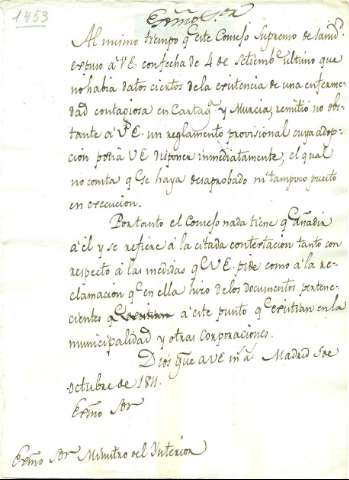 1453
Exmo Sor
Al mismo tiempo qe este Consejo Supremo de sanid.
expuso a V.E. con fecha de 4 de Setiemb. ultimo que
no habia datos ciertos de la existencia de una enferme-
dad contagiosa en Cartaga. y Murcia, remitió no obs-
tante a V.E. un reglamento provisional cuya adop-
cion podia V.E. disponer inmediatamente, el qual
no consta qe se haya desaprobado ni tampoco puesto
en execucion.
Por tanto el Consejo nada tiene qe añadir
a él y se refiere à la citada contestacion tanto con
respecto à las medidas qe V.E. pide como à la re-
clamacion qe en ella hizo de los documentos pertene-
cientes à este punto qe existian en la
municipalidad y otras corporaciones.
Dios gue a V.E. ms as. Madrid 5 de
octubre de 1811.
Exmo Sor
Exmo Sor Ministro del Interior